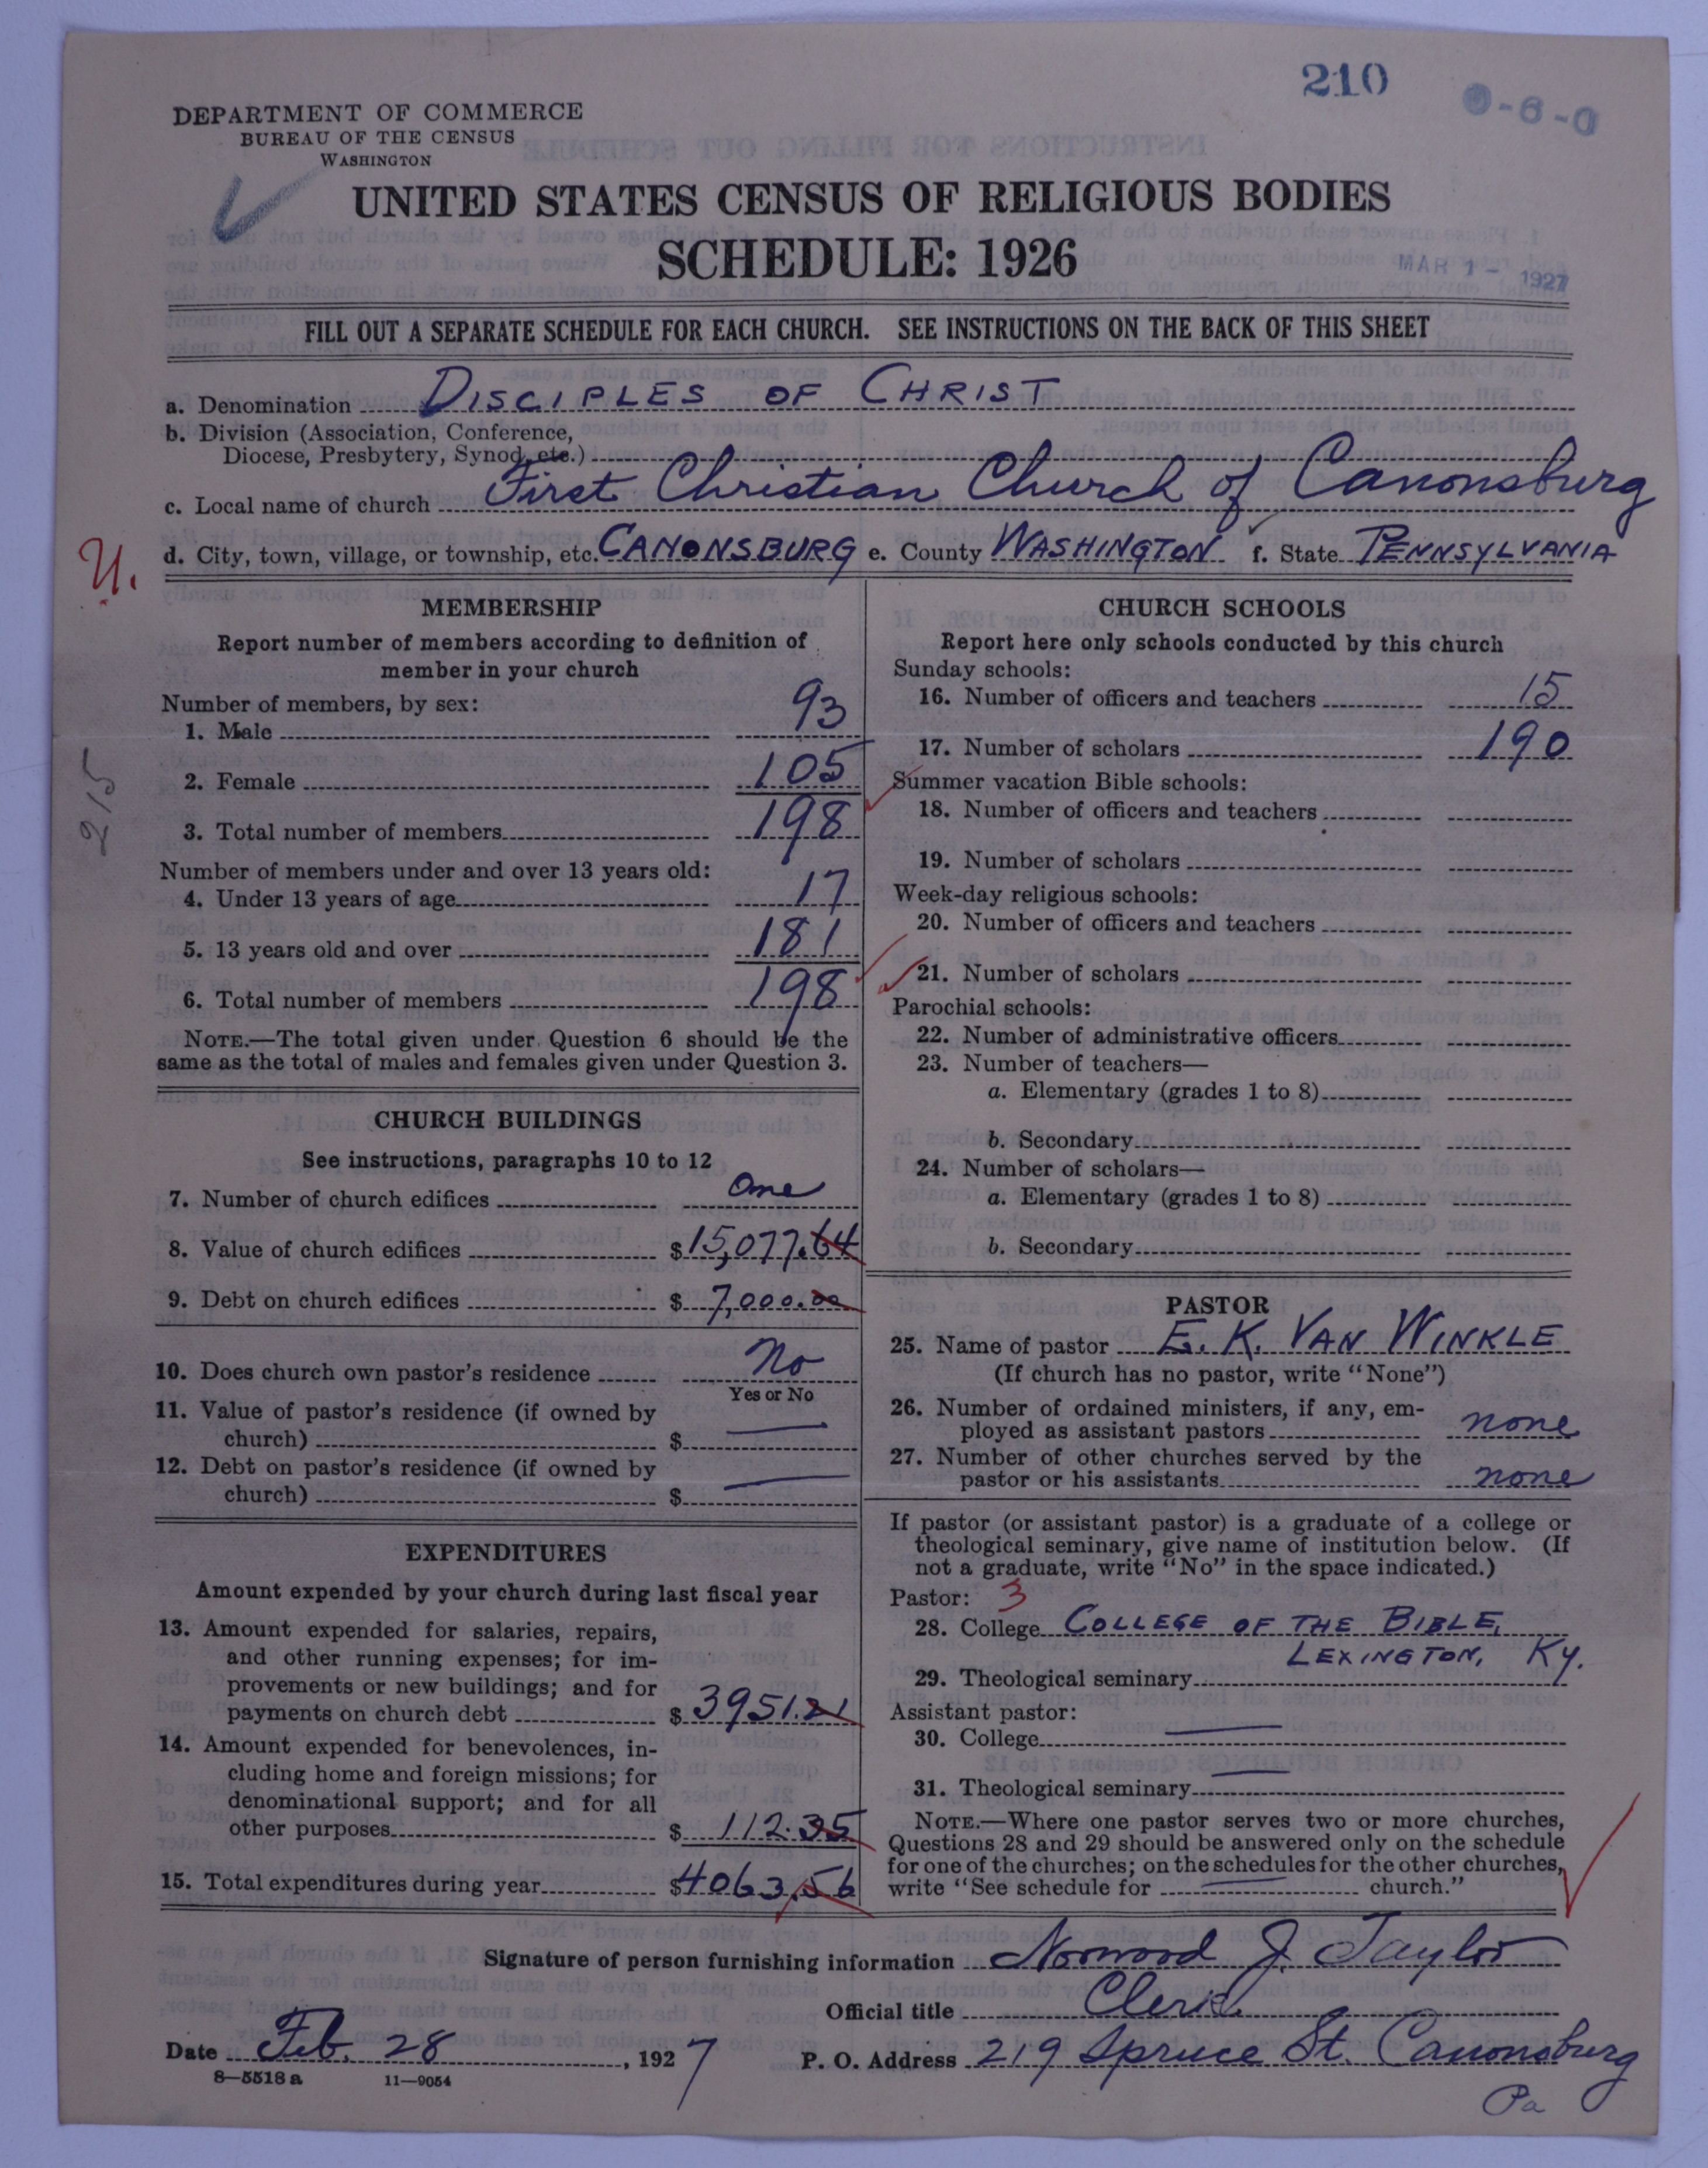 210
0-6-0
DEPARTMENT OF COMMERCE
BUREAU OF THE CENSUS
WASHINGTON
UNITED STATES CENSUS OF RELIGIOUS BODIES
SCHEDULE: 1926
MAR 1 - 1927
FILL OUT A SEPARATE SCHEDULE FOR EACH CHURCH. SEE INSTRUCTIONS ON THE BACK OF THIS SHEET
a. Denomination DISCIPLES OF CHRIST
b. Division (Association, Conference,
Diocese, Presbytery, Synod, etc.)
c. Local name of church First Christian Church of Canonsburg
U.
d. City, town, village, or township, etc. CANONSBURG e. County WASHINGTON f. State PENNSYLVANIA
MEMBERSHIP
Report number of members according to definition of
member in your church
Number of members, by sex:
1. Male 93
2. Female 105
215
3. Total number of members 198
Number of members under and over 13 years old:
4. Under 13 years of age 17
5. 13 years old and over 181
6. Total number of members 198
NOTE.—The total given under Question 6 should be the
same as the total of males and females given under Question 3.
CHURCH BUILDINGS
See instructions, paragraphs 10 to 12
7. Number of church edifices One
8. Value of church edifices $15,077.64
9. Debt on church edifices $7,000.00
10. Does church own pastor's residence No
Yes or No
11. Value of pastor's residence (if owned by
church) $ —
12. Debt on pastor's residence (if owned by
church) $ —
EXPENDITURES
Amount expended by your church during last fiscal year
13. Amount expended for salaries, repairs,
and other running expenses; for im-
provements or new buildings; and for
payments on church debt $3951.21
14. Amount expended for benevolences, in-
cluding home and foreign missions; for
denominational support; and for all
other purposes $112.35
15. Total expenditures during year $4063.56
CHURCH SCHOOLS
Report here only schools conducted by this church
Sunday schools:
16. Number of officers and teachers 15
17. Number of scholars 190
Summer vacation Bible schools:
18. Number of officers and teachers
19. Number of scholars
Week-day religious schools:
20. Number of officers and teachers
21. Number of scholars
Parochial schools:
22. Number of administrative officers
23. Number of teachers—
a. Elementary (grades 1 to 8)
b. Secondary
24. Number of scholars—
a. Elementary (grades 1 to 8)
b. Secondary
PASTOR
25. Name of pastor E. K. VAN WINKLE
(If church has no pastor, write "None")
26. Number of ordained ministers, if any, em-
ployed as assistant pastors none
27. Number of other churches served by the
pastor or his assistants none
If pastor (or assistant pastor) is a graduate of a college or
theological seminary, give name of institution below. (If
not a graduate, write "No" in the space indicated.)
Pastor: 3
28. College COLLEGE OF THE BIBLE,
LEXINGTON, KY.
29. Theological seminary
Assistant pastor:
30. College —
31. Theological seminary —
NOTE.—Where one pastor serves two or more churches,
Questions 28 and 29 should be answered only on the schedule
for one of the churches; on the schedules for the other churches,
write "See schedule for — church."
Signature of person furnishing information Norwood J. Taylor
Official title Clerk
Date Feb. 28, 1927
P. O. Address 219 Spruce St. Canonsburg
Pa
8—5518 a 11—9054